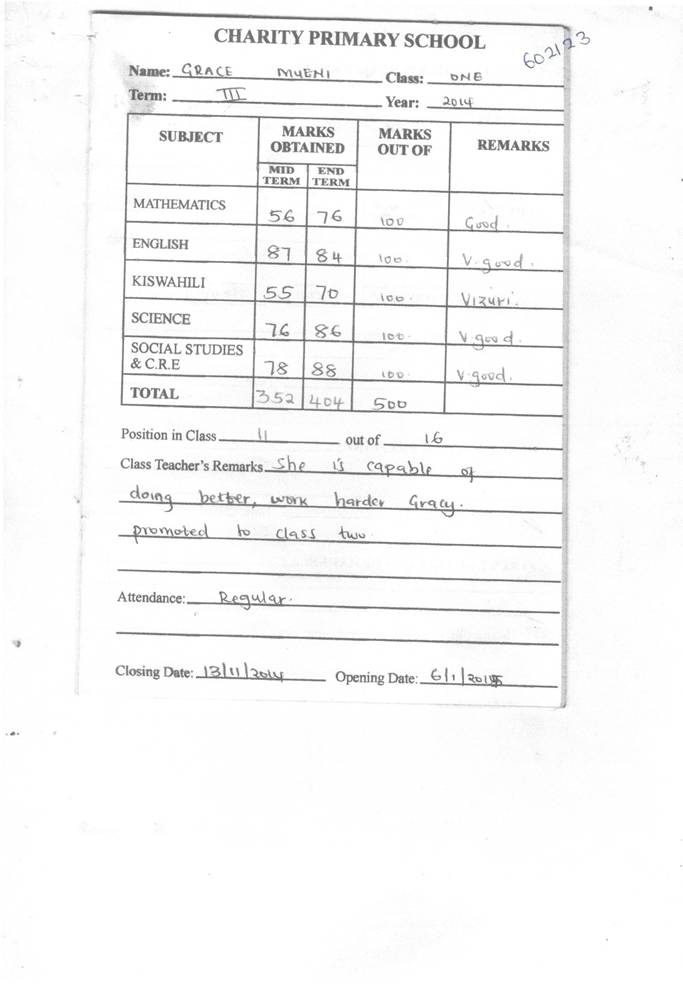 CHARITY PRIMARY SCHOOL
602123
Name: GRACE MUENI Class: ONE
Term: III Year: 2014
SUBJECT MARKS OBTAINED MARKS OUT OF REMARKS
MID TERM END TERM
MATHEMATICS 56 76 100 Good.
ENGLISH 87 84 100. V.good.
KISWAHILI 55 70 100. Vizuri.
SCIENCE 76 86 100. V.good.
SOCIAL STUDIES
& C.R.E 78 88 100. V.good.
TOTAL 352 404 500
Position in Class 11 out of 16
Class Teacher's Remarks She is capable of
doing better, work harder Gracy.
promoted to class two
Attendance: Regular.
Closing Date: 13/11/2014 Opening Date: 6/1/2015